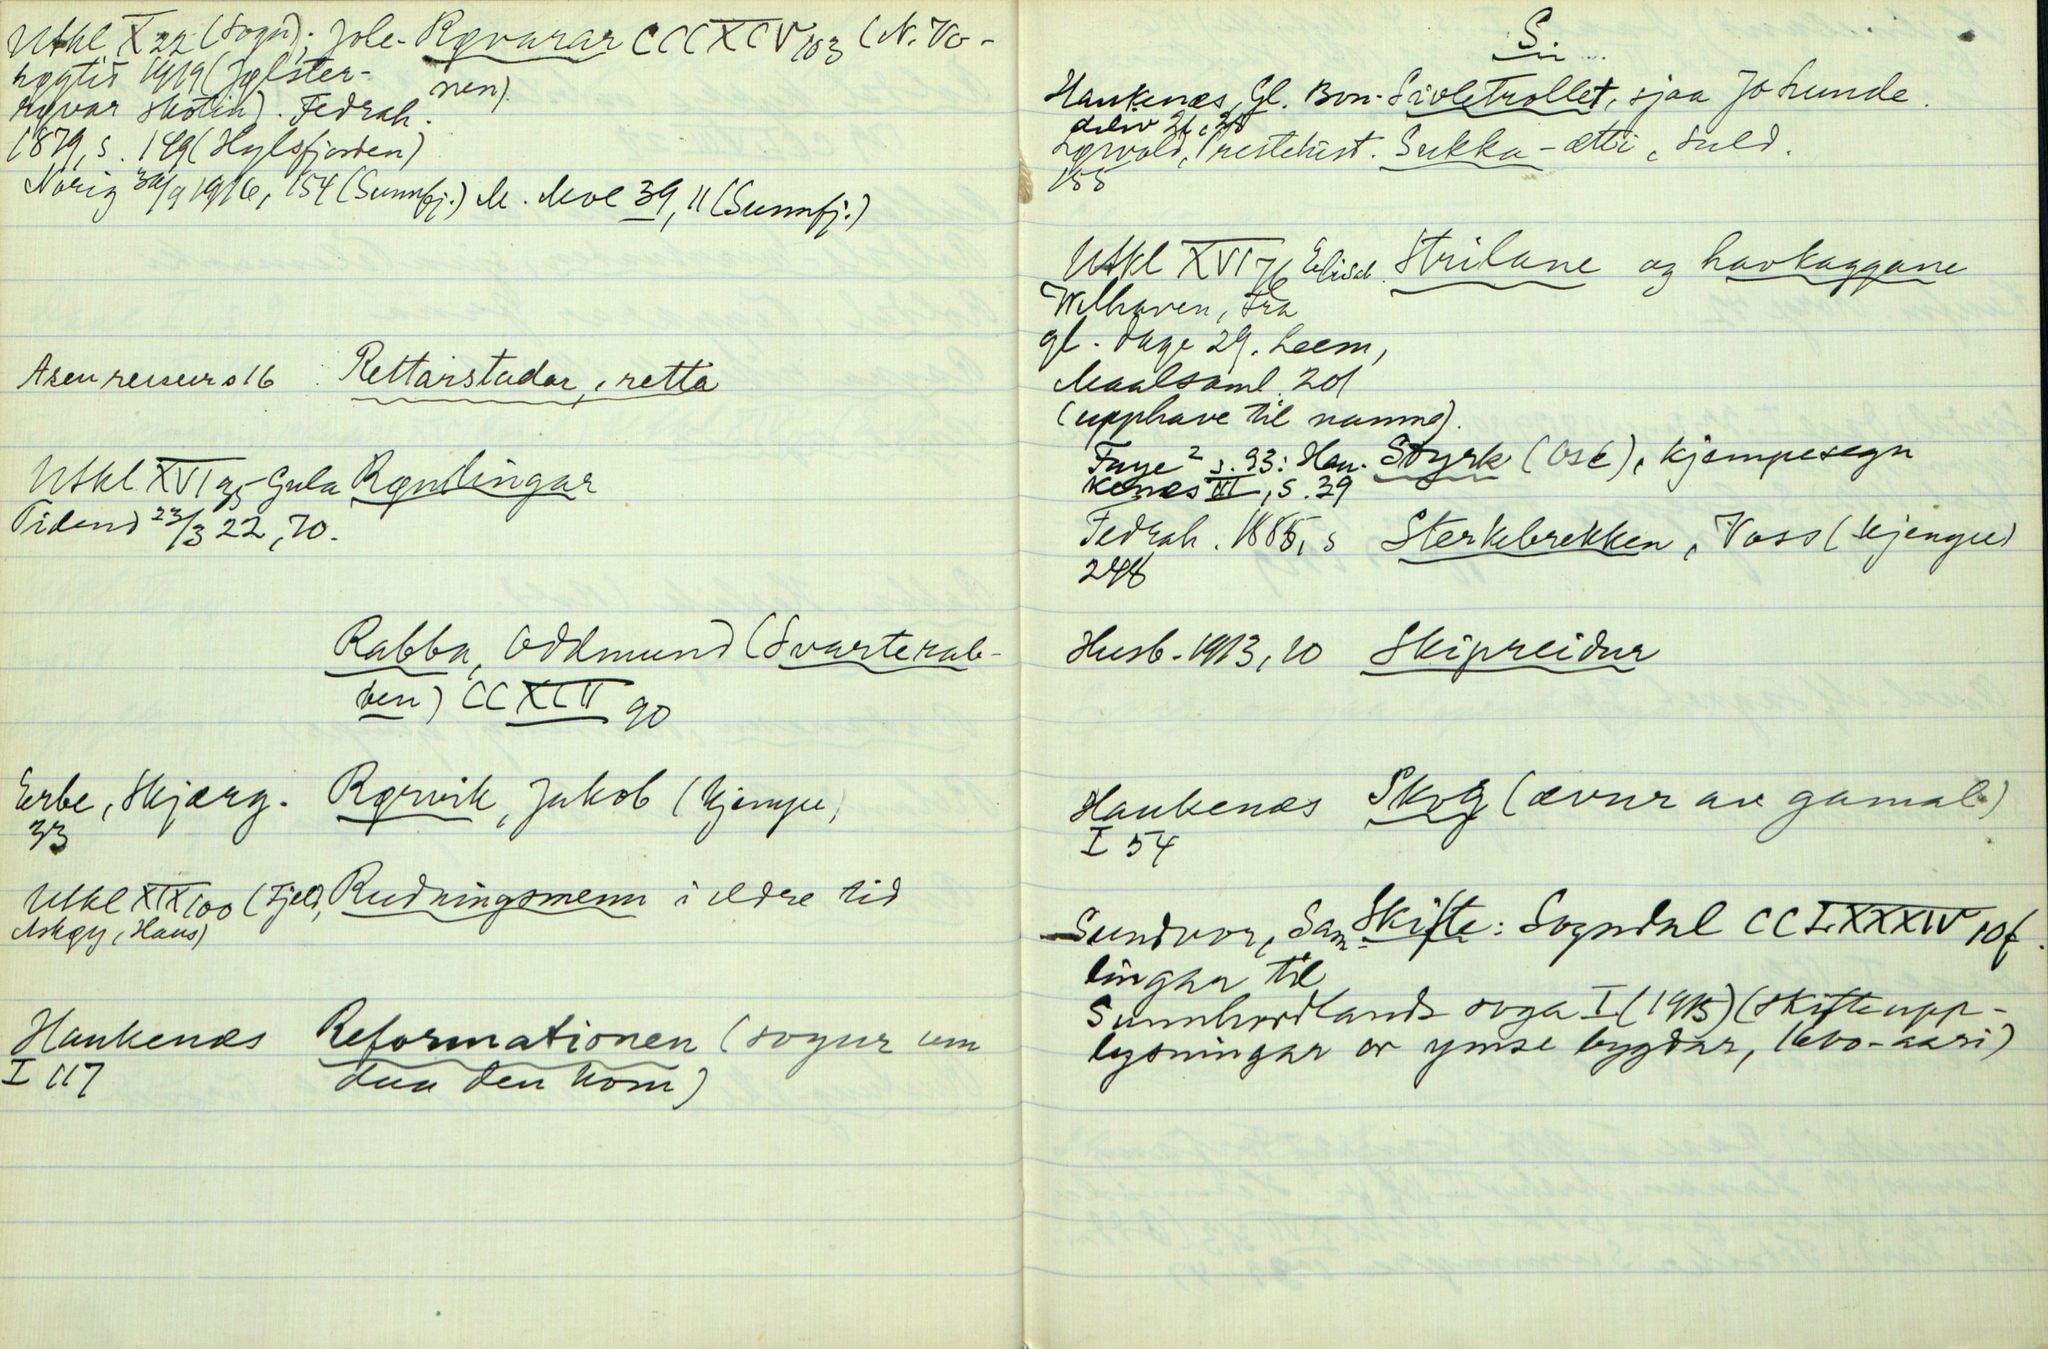 Utkl X 22 (Sogn); Jole- Røvarar CCCXCV 103 (N. Vo-
høgtid 1919 (Jølster- nen).
røvar skotin). Fedrah.
1879, s. 149 (Hylsfjorden)
Norig 30/9 1916, 154 (Sunnfj.) M. Moe 39, 11 (Sunnfj.)
Asen reiser s 16 Rettarstadar, retta
Utkl. XVI 95 Gula Røndingar
Tidend 23/3 22, 70.
Rabba, Oddmund (Svarterab-
ben) CCXCII 90
Erbe, Skjærg. Rørvik, Jakob (kjempe)
33
Utkl XIX 100 (Fjell, Rudningsmenn i eldre tid
Askøy, Haus)
Haukenæs Reformationen (sogur um
I 117 daa den kom)
S.
Haukenæs, Gl. Bon- Sivletrollet, sjaa Jo Hunde.
deliv 21, 26
Løvold, Prestehist. Sukka-ætti, Suld.
155
Utkl XVI 76 Elisab. Strilane og havkaggane
Welhaven, Fra
gl. dage 29. Leem,
Maalsaml. 201
(upphave til namne).
Faye² s. 93: Hau- Styrk (Ose), kjempesegn
kenæs III, s. 29
Fedrah. 1885, s Sterkebrekken, Voss (kjempe)
248
Husb. 1913, 10 Skipreidur
Haukenæs Skog (ævur av gamal)
I 54
Sundvor, Sam- Skifte: Sogndal CCLXXXIV 10f.
lingar til
Sunnhordlands soga I (1915) (skifteupp-
lysningar or ymse bygdar, 1600-aari)